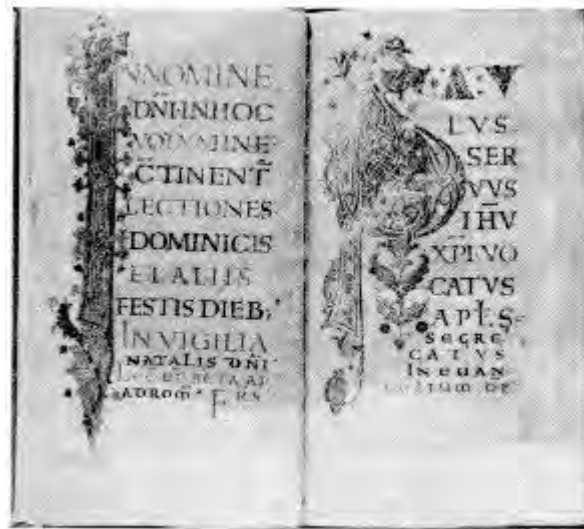 IN NOMINE
DÑI IN HOC
VOLVMINE
C̄TINENT̄
LECTIONES
DOMINICIS
ET ALIIS
FESTIS DIEB;
IN VIGILIA
NATALIS DÑI
AD ROM̄
PAV
LVS
SER
VVS
IH̄V
XPI VO
CATVS
APLS
SEGRE
CATVS
IN EUAN
GELIUM DE